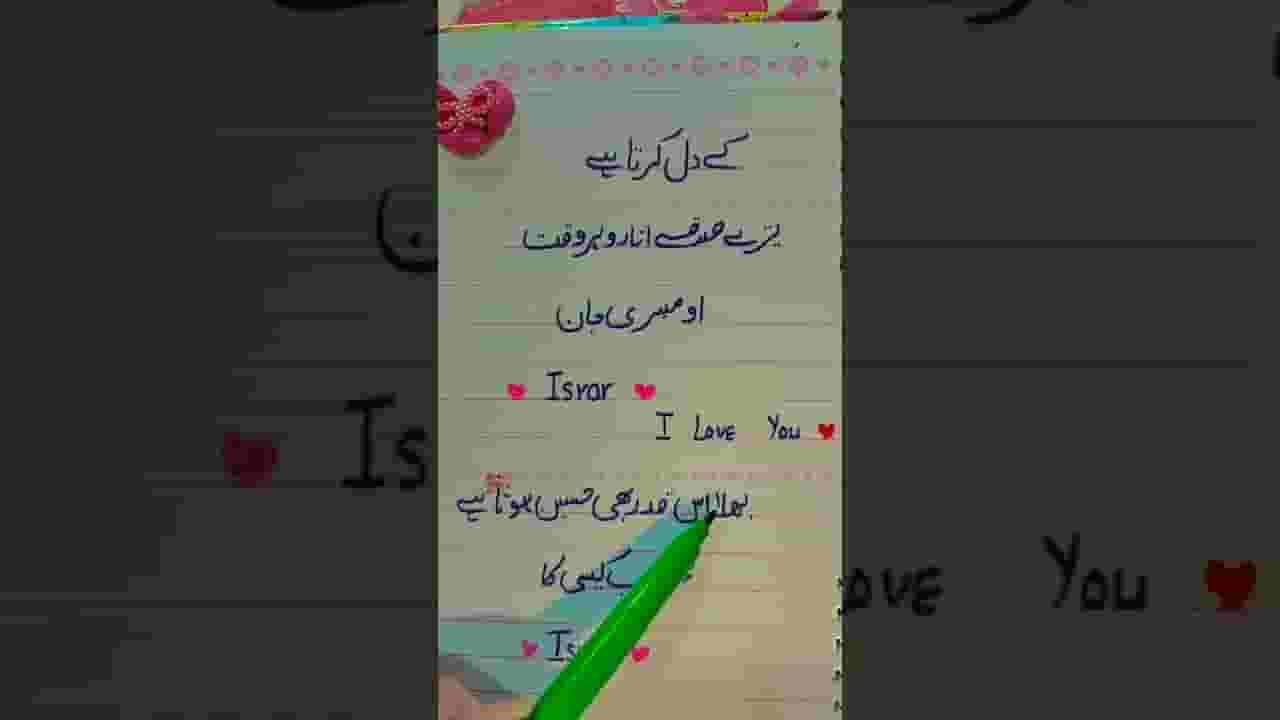 کے دل کرتا ہے
تیرے صدقے اتارو ہر وقت
او میری جان
Israr
I Love You
بھلا اس قدر بھی حسین ہوتا ہے
کیسی کا